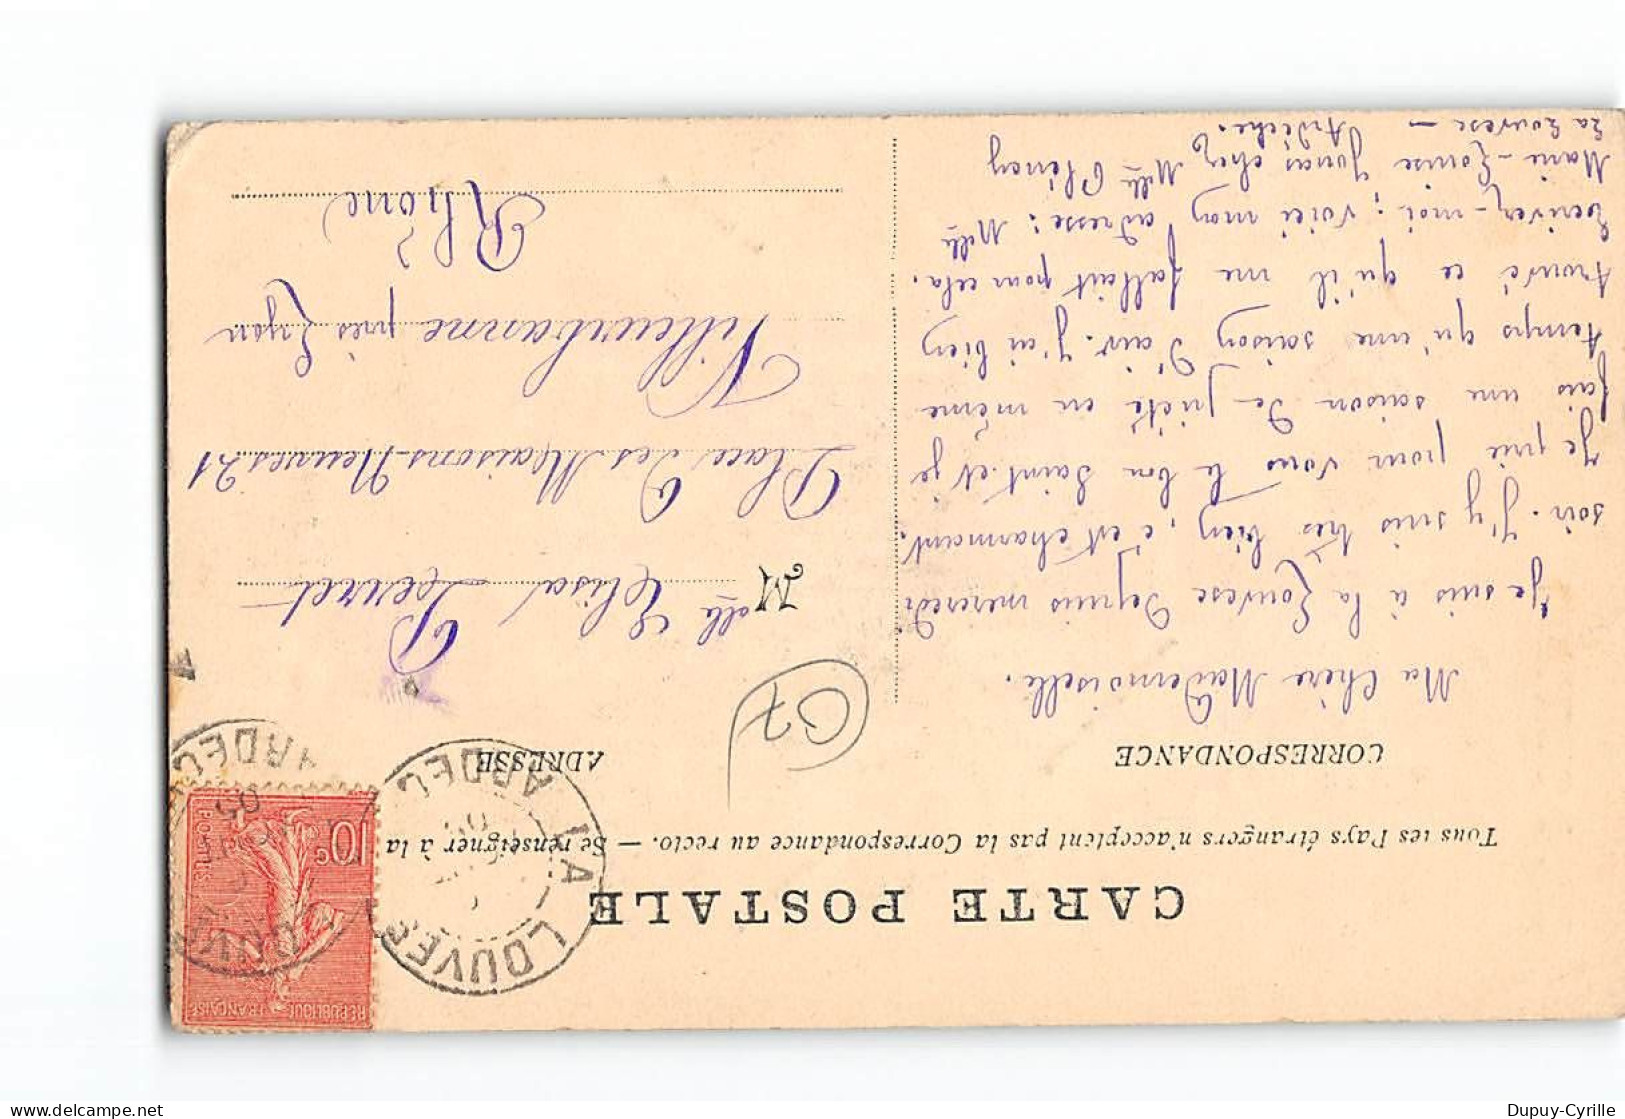 CARTE POSTALE
Tous les Pays étrangers n'acceptent pas la Correspondance au recto. — Se renseigner à la
CORRESPONDANCE
Ma Chère Mademoiselle.
Je suis à la Louvesc depuis mercredi
soir. J'y suis très bien, c'est charmant.
Je prie pour vous le bon Saint et je
fais une saison de piété en même
temps qu'une saison d'air. J'ai bien
trouvé ce qu'il me fallait pour cela.
Ecrivez-moi; voici mon adresse: Melle
Marie-Louise Jonas chez Melle
La Louvesc — Ardèche.
ADRESSE
Melle Elisa
Place des Maisons-Neuves 21
Villeurbanne près Lyon
Rhône
C7
LA LOUVESC
ARDEC
05
LOUVE
ARDEC
05
10c
POSTES
RÉPUBLIQUE FRANÇAISE
Dupuy-Cyrille